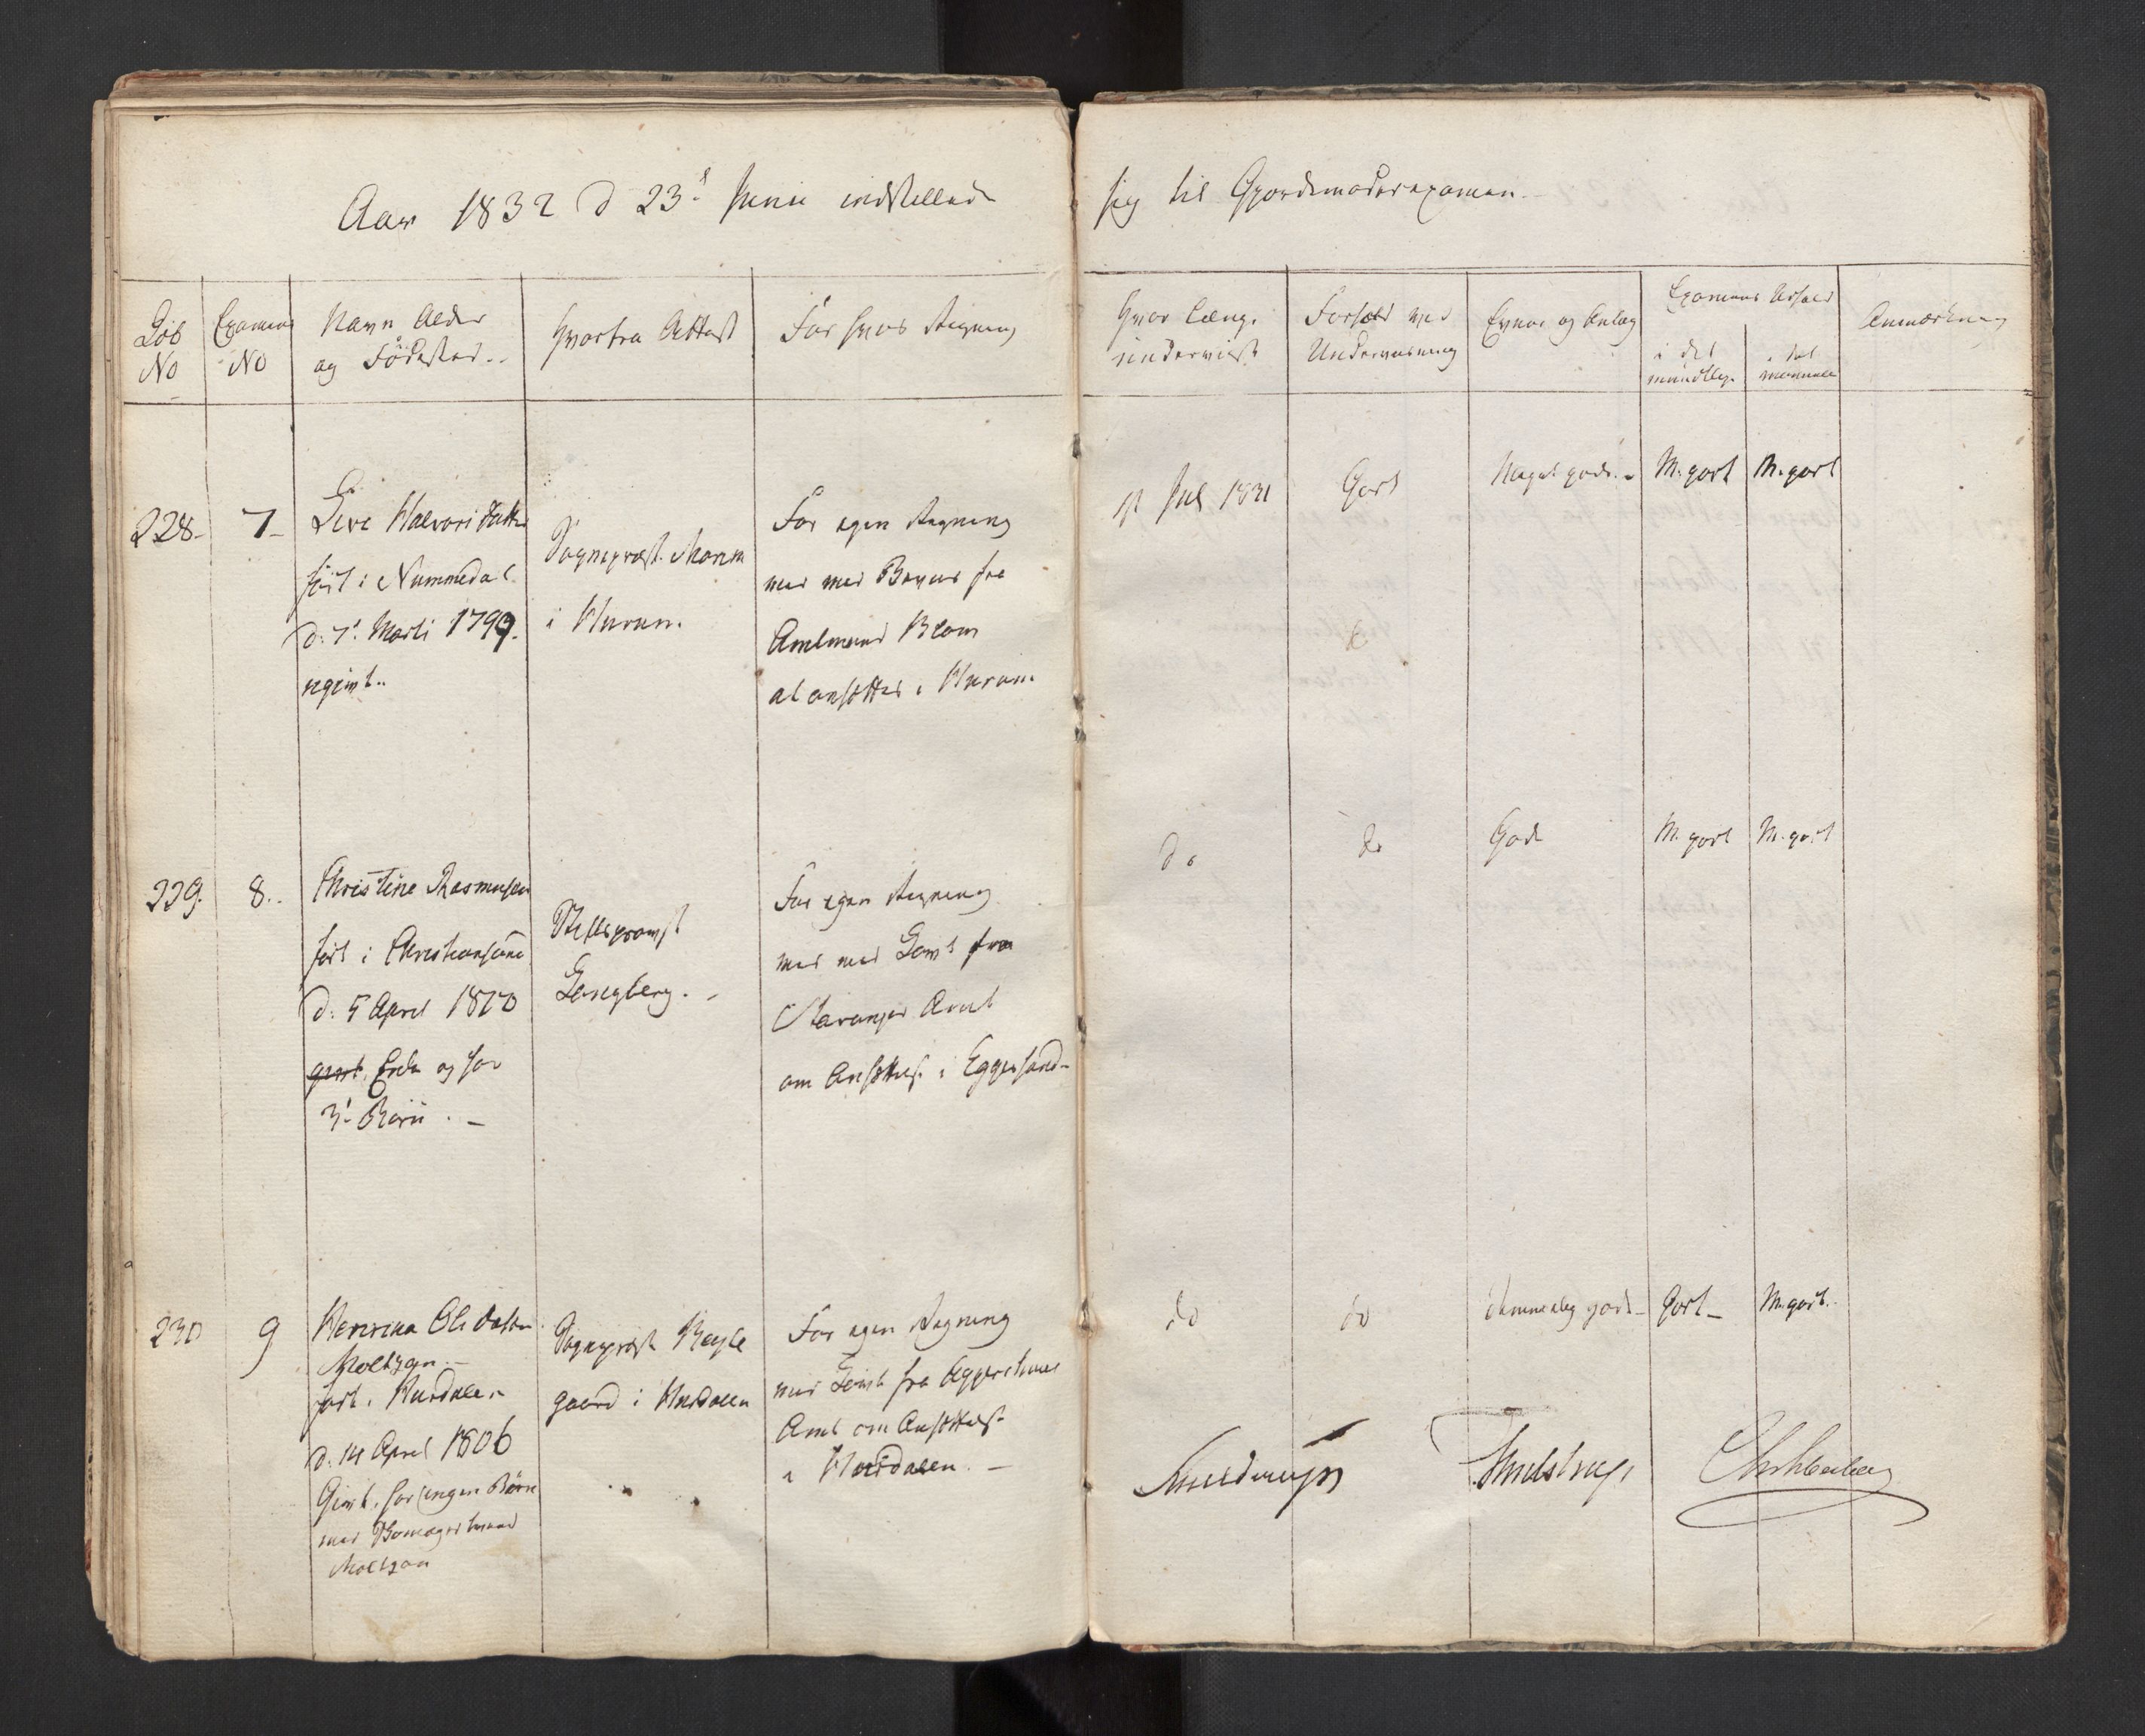 Aar 1832 d 23d Junii indstillede
sig til Gjordemoderexamen.
Löb
No
Examens
No
Navn Alder
og Födested..
hvorfra Attest
For hvis Regning
hvor længe
underviist
Forhold ved
Underviisning
Evner og Anlæg
Examens Udfald
i det
mundtlige
i det
manuele
Anmærkning
228-
7-
Live Halvorsdatter
föd i Nummedal
d. 7. Marti 1799.
ugivt..
Sogneprest
i Hurum.
For egen Regning
men med Beviis fra
Amtmand Blom
at ansættes i Hurum.
Juli 1831
Godt
Meget gode..
M. godt
M. godt
229.
8..
Christine Rasmusen
föd i Christiansund
d. 5 April
givt. Enke og har
3 Börn . -
Stiftsprovst
Langberg. -
For egen Regning
men med Lovt fra
Stavanger Amt
om Ansættelse i Eggersund-
do
do
Gode
M. godt
M. godt
230
9
Olesdatter
Moltzau.-
föd i Hurdalen
d. 14 April 1806
Givt, har ingen Börn
med
Moltzau
Sogneprest
gaard i Hurdalen
For egen Regning
med Lovt fra Aggershuus
Amt om Ansættelse
i Hurdalen. -
do
do
temmelig gode-
Godt-
M. godt..